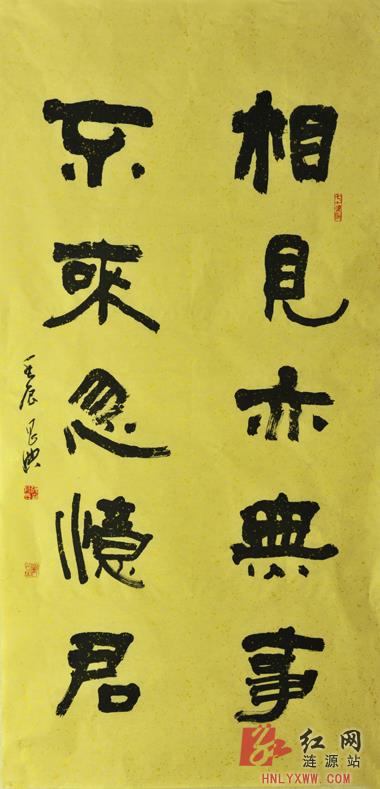 相見亦無事
不來忽憶君
壬辰
红网
涟源站
HNLYXWW.COM